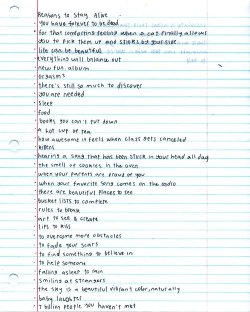 Reasons to stay Alive
you have forever to be dead
for that comforting feeling when a cat finally allows
you to pick them up and sticks by your side
life can be beautiful
everything will balance out
new fun. album
orgasms
there's still so much to discover
you are needed
sleep
food
books you can't put down
a hot cup of tea
how awesome it feels when class gets canceled
kittens
hearing a song that has been stuck in your head all day
the smell of cookies in the oven
when your parents are proud of you
when your favorite song comes on the radio
there are beautiful places to see
bucket lists to complete
rules to break
art to see & create
lips to kiss
to overcome more obstacles
to fade your scars
to find something to believe in
to help someone
falling asleep to rain
smiling at strangers
the sky is a beautiful vibrant color, naturally
baby laughter
7 billion people you haven't met